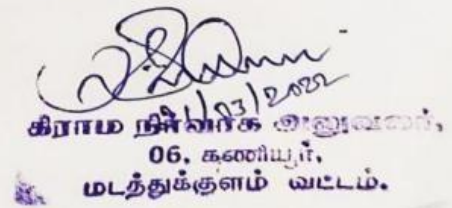 21/03/2022
கிராம நிர்வாக அலுவலர்,
06. கணியூர்,
மடத்துக்குளம் வட்டம்.